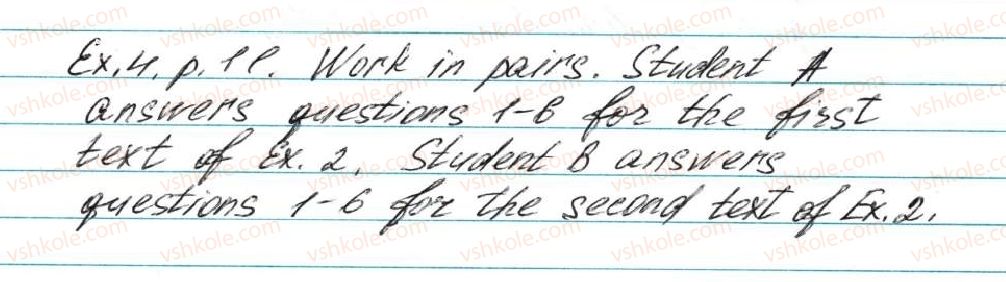 Ex. 4. p. 11. Work in pairs. Student A
answers questions 1-6 for the first
text of Ex. 2. Student B answers
questions 1-6 for the second text of Ex. 2.